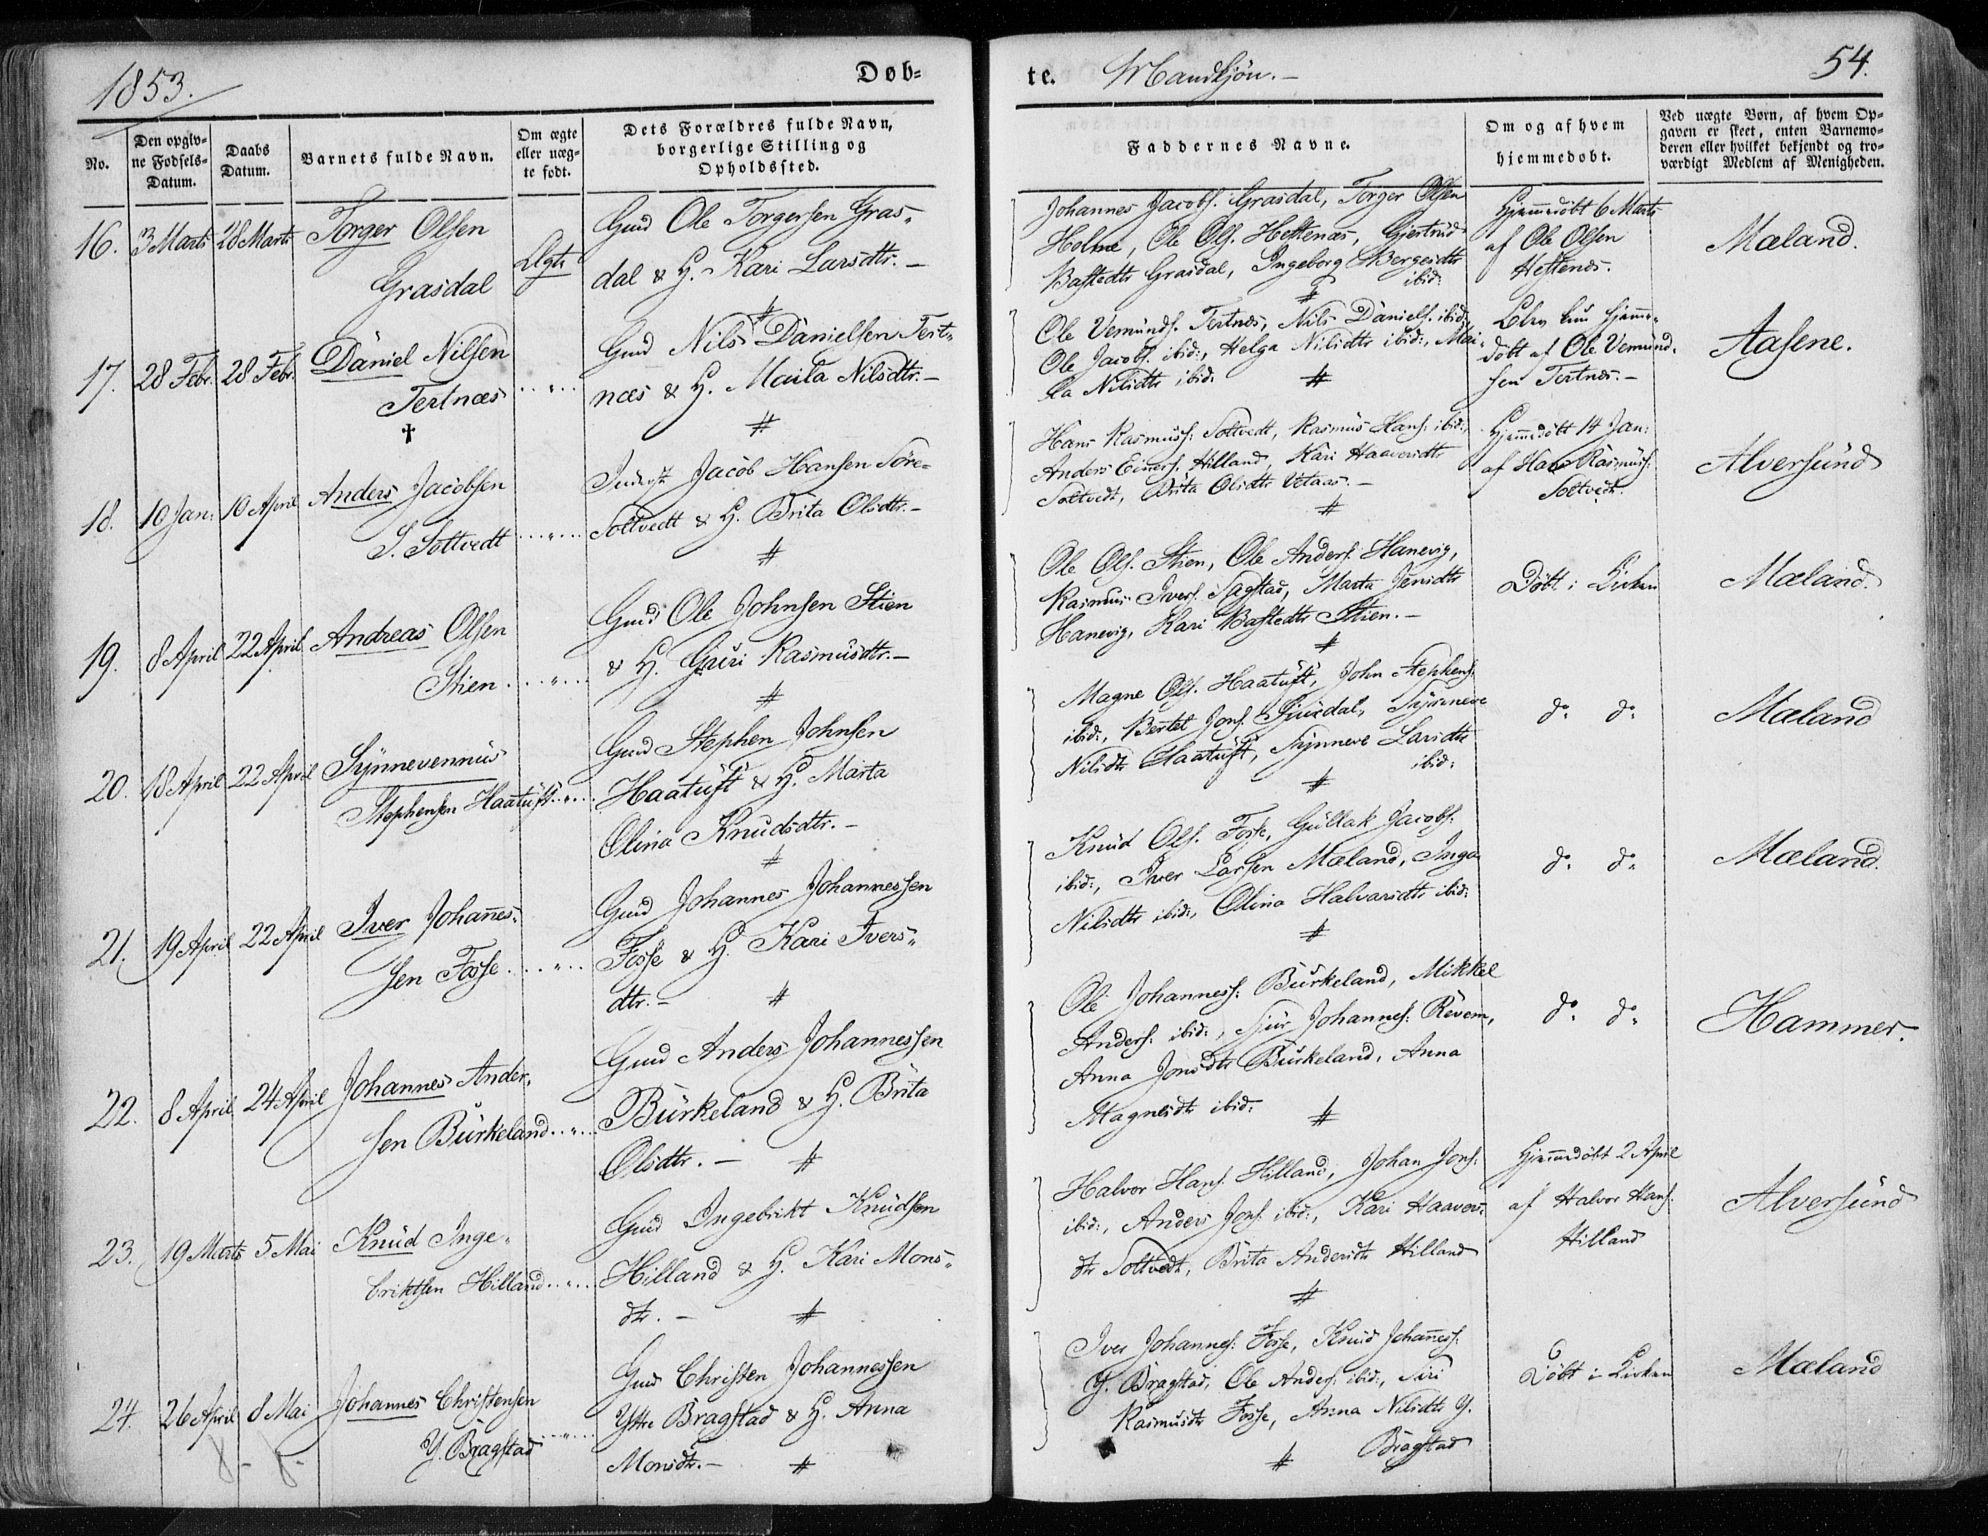 1853.
Døb=
te. Mandkjøn.-
54.
No.
Den opgiv=
ne Fødsels=
Datum.
Daabs
Datum.
Barnets fulde Navn.
Om ægte
eller uæg=
te født.
Dets Forældres fulde Navn,
borgerlige Stilling og
Opholdssted.
Faddernes Navne.
Om og af hvem
hjemmedøbt.
Ved uægte Børn, af hvem Op=
gaven er skeet, enten Barnemo=
deren eller hvilket bekjendt og tro=
værdigt Medlem af Menigheden.
16. 3 Marts 28 Marts Torger Olsen
Grasdal
Ægte
Gmd Ole Torgersen Gras„
dal & H. Kari Larsdtr.-
Johannes Jacobs. Grasdal, Torger Olsen
Holme, Ole Ols. Hettenæs, Gjertrud
Bastedtr Grasdal, Ingeborg Bergesdtr
ibid:
Hjemmedøbt 6 Marts
af Ole Olsen
Hettenes.
Mæland.
17. 28 Febr. 28 Febr. Daniel Nilsen
Tertnæs
†
Gmd Nils Danielsen Tert„
næs & H. Marta Nilsdtr.-
Ole Vemunds. Tertnæs, Nils Daniels. ibid:,
Ole Jacobs. ibid:, Helga Nilsdtr ibid:, Mar„
ta Nilsdtr ibid:
Blev kun hjemme„
døbt af Ole Vemund„
sen Tertnes.-
Aasene.
18. 10 Jan: 10 April Anders Jacobsen
S. Soltvedt
Inderst Jacob Hansen Søre„
Soltvedt & H. Brita Olsdtr.-
Hans Rasmuss: Soltvedt, Rasmus Hans: ibid:,
Anders Einers. Hilland, Kari Haaversdtr
Soltvedt, Brita Olsdtr Vetaas.-
Hjemmedøbt 14 Jan:
af Hans Rasmuss:
Soltvedt.
Alversund
19. 8 April 22 April Andreas Olsen
Stien
Gmd Ole Johnsen Stien
& H. Guri Rasmusdtr.-
Ole Ols. Stien, Ole Anders. Hanevig,
Rasmus Ivers. Sagstad, Marta Jensdtr
Hanevig, Kari Bastedtr Stien.-
Døbt i Kirken
Mæland
20. 18 April 22 April Synnevennus
Stephensen Haatuft
Gmd Stephen Johnsen
Haatuft & H. Marta
Olina Knudsdtr.-
Magne Ols. Haatuft, John Stephens.
ibid:, Bertel Jons. Sjursdal, Synneve
Nilsdtr Haatuft, Synneve Larsdtr
ibid:
do do
Mæland
21. 19 April 22 April Iver Johannes„
sen Fosse
Gmd Johannes Johannessen
Fosse & H. Kari Ivers„
dtr.-
Knud Ols. Fosse, Gullak Jacobs.
ibid:, Iver Larsen Mæland, Inga
Nilsdtr ibid:, Olina Halvarsdtr ibid:
do do
Mæland.
22. 8 April 24 April Johannes Ander„
sen Burkeland
Gmd Anders Johannessen
Burkeland & H. Brita
Olsdtr.-
Ole Johanness: Burkeland, Mikkel
Anders. ibid:, Sjur Johannes: Revem,
Anna Jonsdtr Burkeland, Anna
Magnesdtr ibid:
do do
Hammer.
23. 19 Marts 5 Mai Knud Inge„
briktsen Hilland
Gmd Ingebrikt Knudsen
Hilland & H. Kari Mons„
dtr.-
Halvor Hans. Hilland, Johan Jons.
ibid:, Anders Jons. ibid:, Kari Haavers„
dtr Soltvedt, Brita Andersdtr Hilland
Hjemmedøbt 2 April
af Halvor Hans.
Hilland
Alversund
24. 26 April 8 Mai Johannes Christensen
Y. Bragstad
Gmd Christen Johannessen
Yttre Bragstad & H. Anna
Monsdtr.-
Iver Johannes: Fosse, Knud Johanness:
Y. Bragstad, Ole Anders. ibid:, Siri
Rasmusdtr Fosse, Anna Nilsdtr Y.
Bragstad
Døbt i Kirken
Mæland